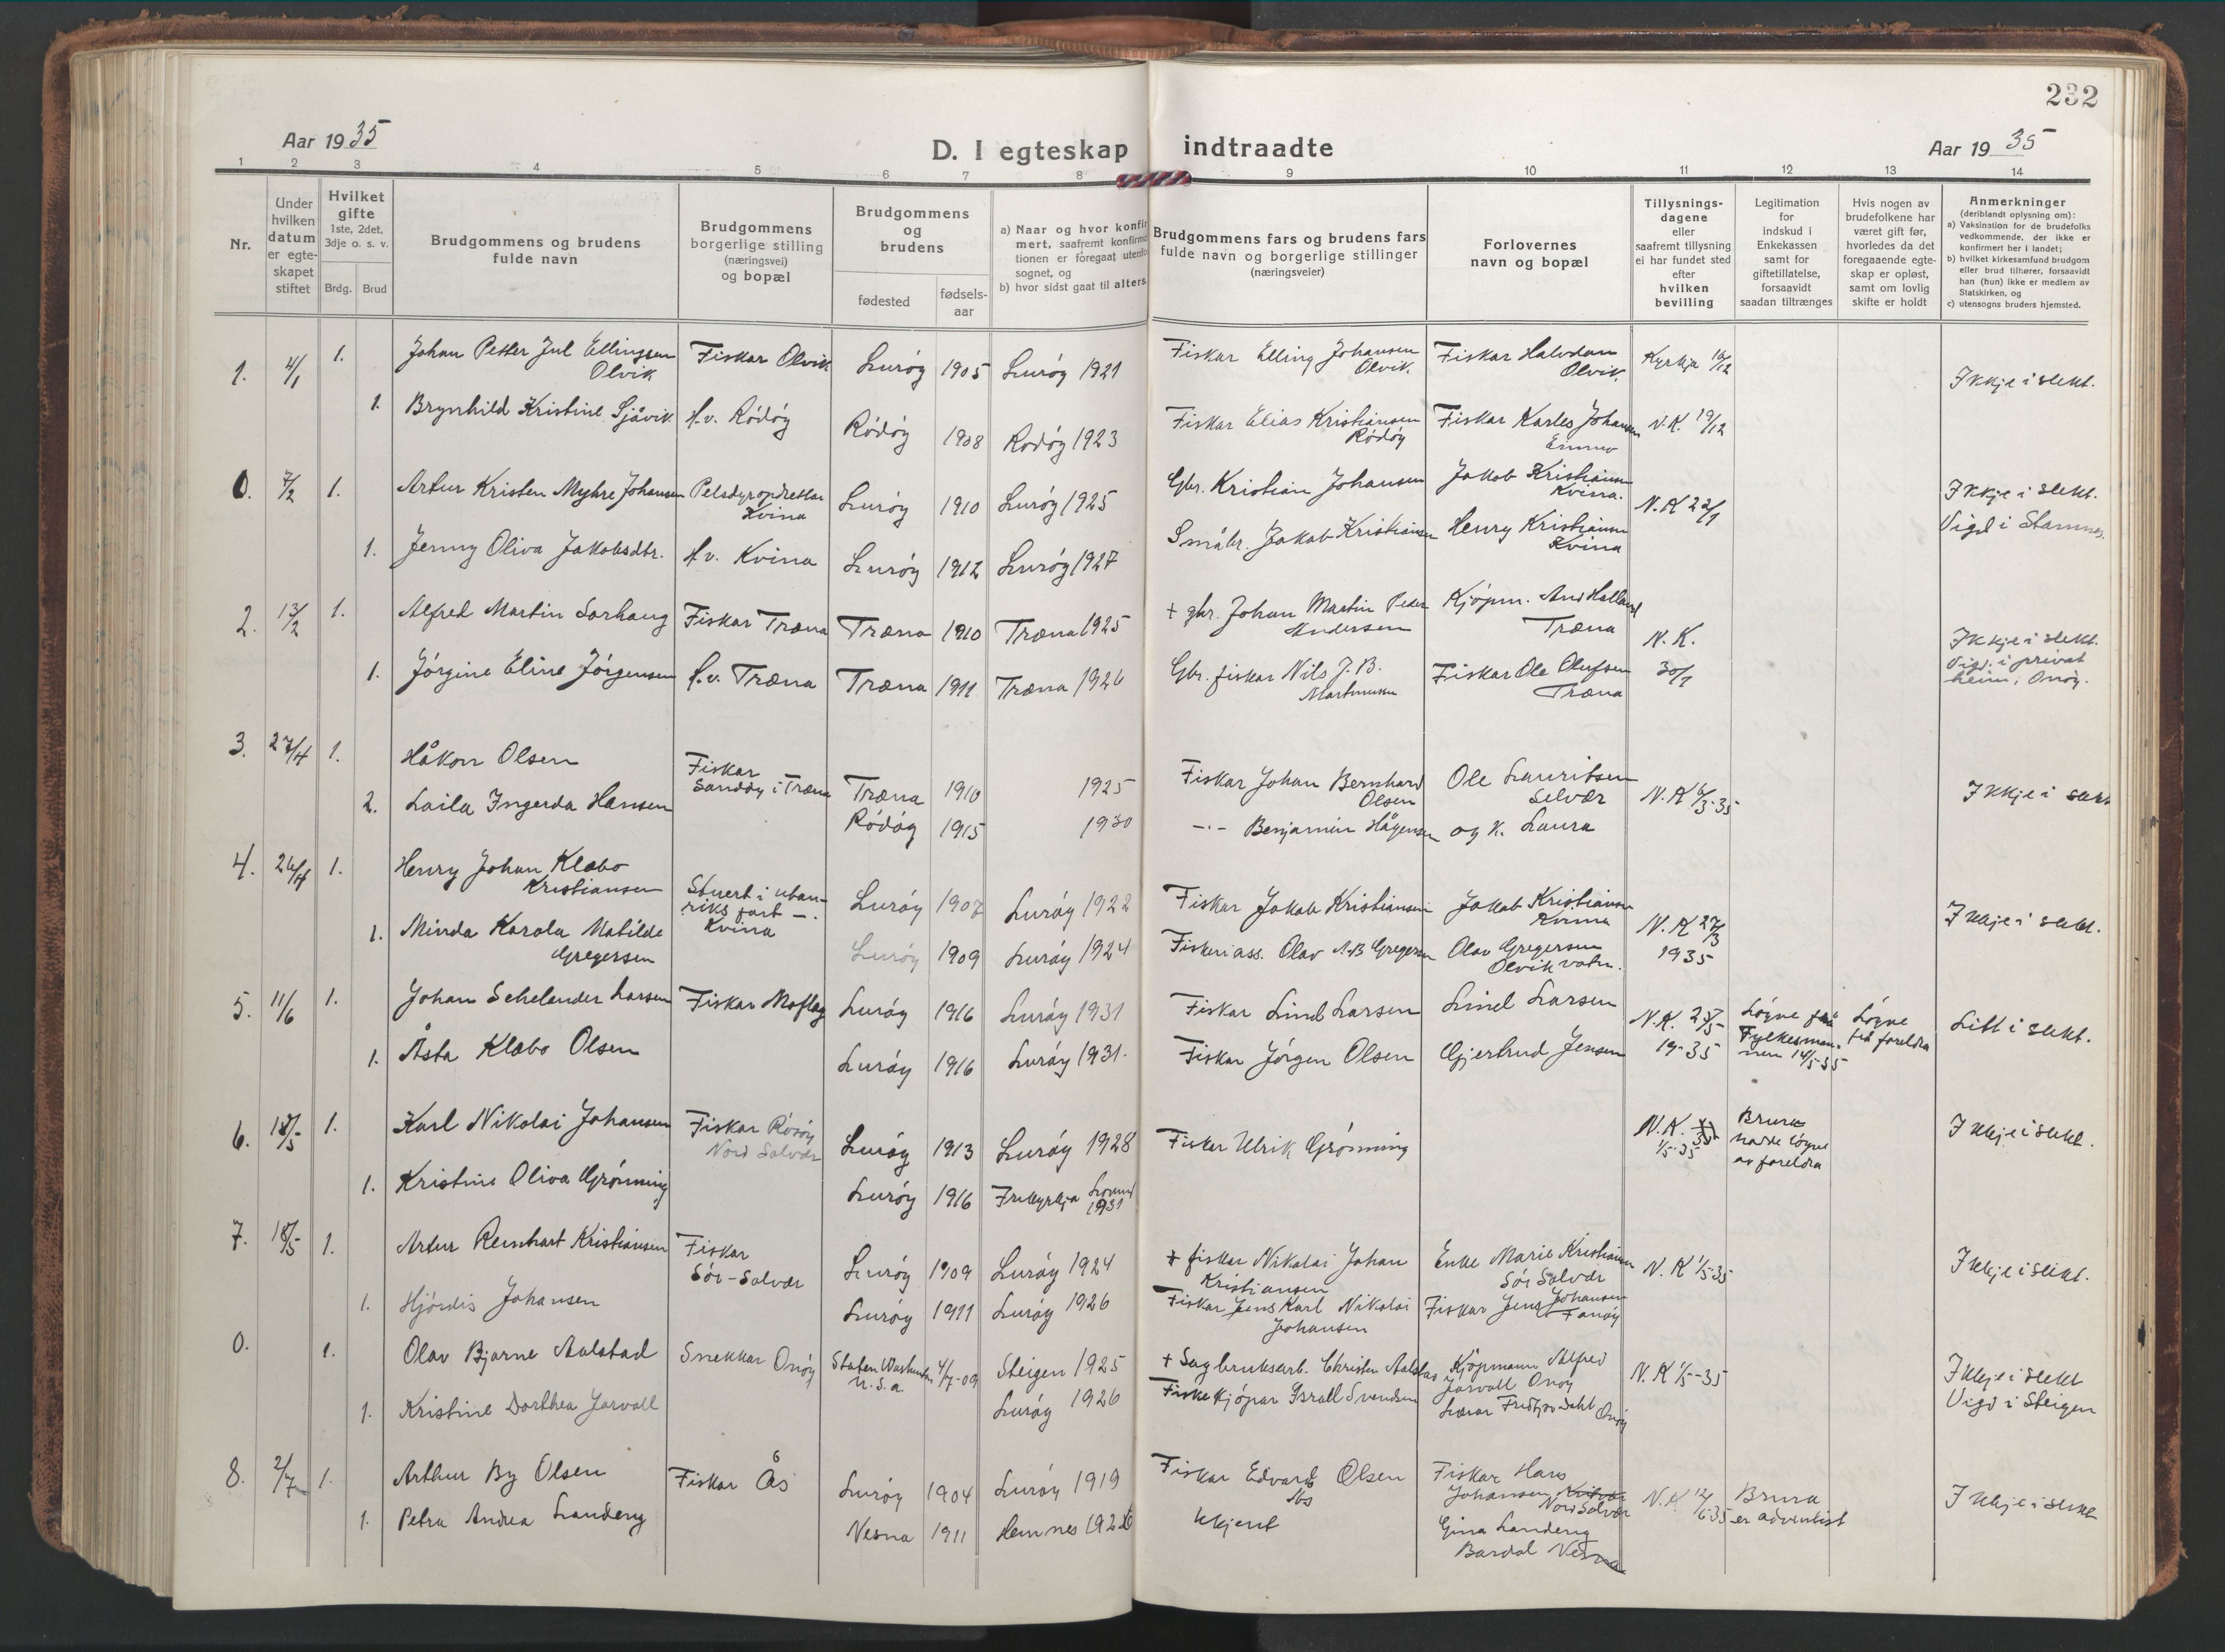 232
Aar 1935
D. I egteskap indtraadte
Aar 1935
1 2 3 4 5 6 7 8 9 10 11 12 13 14
Nr.
Under hvilken datum er egteskapet stiftet
Hvilket gifte
1ste, 2det, 3dje o. s. v.
Brdg. Brud
Brudgommens og brudens fulde navn
Brudgommens borgerlige stilling (næringsvei) og bopæl
Brudgommens og brudens
fødested
fødsels-aar
a) Naar og hvor konfirmert, saafremt konfirmationen er foregaat utenfor sognet, og
b) hvor sidst gaat til alters.
Brudgommens fars og brudens fars fulde navn og borgerlige stillinger (næringsveier)
Forlovernes navn og bopæl
Tillysnings-dagene eller saafremt tillysning ei har fundet sted efter hvilken bevilling
Legitimation for indskud i Enkekassen samt for giftetillatelse, forsaavidt saadan tiltrænges
Hvis nogen av brudefolkene har været gift før, hvorledes da det foregaaende egteskap er opløst, samt om lovlig skifte er holdt
Anmerkninger
(deriblandt oplysning om):
a) Vaksination for de brudefolks vedkommende, der ikke er konfirmert her i landet;
b) hvilket kirkesamfund brudgom eller brud tilhører, forsaavidt han (hun) ikke er medlem av Statskirken, og
c) utensogns bruders hjemsted.
1. 4/1 1. Johan Petter Jul Ellingsen Olvik Fiskar Olvik Luröy 1905 Luröy 1921 Fiskar Elling Johansen Olvik. Fiskar Halvdan Olvik. Kyrkja 16/12 Ikkje i slekt.
1. Brynhild Kristine Sjåvik. H.v. Rödöy Rödöy 1908 Rodöy 1923 Fiskar Elias Kristiansen Rödöy Fiskar Karles Johansen N.K. 19/12
0. 7/2 1. Artur Kristen Myhre Johansen Pelsdyropdrettar Kvina Luröy 1910 Luröy 1925 Gbr. Kristian Johansen Jakob Kristiansen Kvina. N.K 22/1 Ikkje i slekt. Vigd i Stamnes.
1. Jenny Oliva Jakobsdtr. H.v. Kvina Luröy 1912 Luröy 1927 Småbr. Jakob Kristiansen Henry Kristiansen Kvina
2. 13/2 1. Alfred Martin Sørhaug Fiskar Træna Træna 1910 Træna 1925 + gbr. Johan Martin Peder Andersen Kjöpm. And Halland Træna N.K. 30/1 Ikkje i slekt. Vigd. i privat heim, Onöy.
1. Jörgine Eline Jörgensen H.v. Træna Træna 1911 Træna 1926 Gbr. fiskar Nils J.B. Martinussen Fiskar Ole Olufsen Træna
3. 27/4 1. Håkon Olsen Fiskar Sandöy i Træna Træna 1910 1925 Fiskar Johan Bernhard Olsen Ole Lauritsen Selvær N.K 6/3-35 Ikkje i slekt
2. Laila Ingerda Hansen Rödöy 1915 1930 -·- Benjamin Hågensen og K. Laura
4. 26/4 1. Henry Johan Klæbo Kristiansen Stuert i utanriks fart -. Kvina Luröy 1907 Luröy 1922 Fiskar Jakob Kristiansen Jakob Kristiansen Kvina N.K 27/3 1935 Ikkje i slekt.
1. Minda Karola Matilde Gregersen Luröy 1909 Luröy 1924 Fiskeriass. Olav A.B Gregersen Olav Gregersen Olvikvatn.
5. 11/6 1. Johan Schelander Larsen Fiskar Moflag Luröy 1916 Luröy 1931 Fiskar Lind Larsen Lind Larsen N.K. 25/5-19-35 Löyve frå Fylkesmannen 14/5-35 Löyve frå foreldra Litt i slekt.
1. Åsta Klæbo Olsen Luröy 1916 Luröy 1931. Fiskar Jörgen Olsen Gjertrud Jensen
6. 18/5 1. Karl Nikolai Johansen Fiskar Nord Solvær Luröy 1913 Luröy 1928 Fisker Ulrik Grönning N.K. 1/5-35 Brura hadde löyve av foreldra Ikkje i slekt.
1. Kristine Oliva Grönning Luröy 1916 Frikyrkja Lovund 1931
7. 18/5 1. Artur Reinhart Kristiansen Fiskar Sör-Solvær Luröy 1909 Luröy 1924 + fiskar Nikolai Johan Kristiansen Enke Marie Kristiansen Sör Solvær N.K 1/5-35 Ikkje i slekt.
1. Hjördis Johansen Luröy 1911 Luröy 1926 Fiskar Jens Karl Nikolai Johansen Fiskar Jens Johansen
0. 1. Olav Bjarne Aalstad Snekkar Onöy Staten Washington U.S.a. 4/7-09 Steigen 1925 + Sagbruksarb. Christen Aalstad Kjöpmann Alfred Jarvoll Onöy N.K 1/5-35 Ikkje i slekt Vigd i Steigen
1. Kristine Dorthea Jarvoll Luröy 1926 Fiskekjöpar Israll Svendsen Lærar Fridtjov Dahl Onöy
8. 2/7 1. Arthur By Olsen Fiskar Ås Luröy 1904 Luröy 1919 Fiskar Edvard Olsen Ås Fiskar Hans Johansen Nord Solvær N.K 12/6-35 Brura er adventist Ikkje i slekt
1. Petra Andrea Landeng Nesna 1911 Hemnes 1926 Ukjent Gina Landeng Bardal Nesna